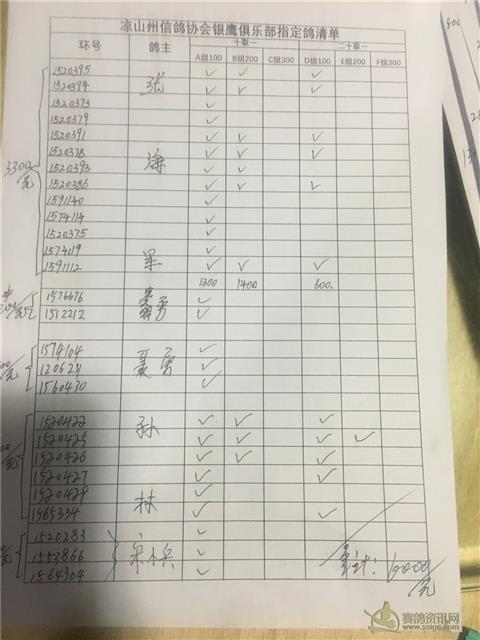 凉山州信鸽协会银鹰俱乐部指定鸽清单
环号 鸽主 十取一 二十取一
A组100 B组200 C组300 D组100 E组200 F组300
1520395 ✓ ✓ ✓
1520394 张 ✓ ✓ ✓
1520373 ✓
1520379 ✓
1520391 ✓ ✓ ✓
1520378 海 ✓ ✓ ✓
3300元 1520393 ✓ ✓
1520386 ✓ ✓ ✓
1591140 ✓
1574114 ✓
1520375 ✓
1574119 ✓
1591112 军 ✓ ✓ ✓
1300 1400 600
1576676 ✓
1512212 勇 ✓
1574104 ✓
120621 聂勇 ✓
1560430 ✓
1520422 孙 ✓ ✓ ✓
1520425 ✓ ✓ ✓ ✓
1520426 ✓ ✓ ✓
1520427 ✓ ✓
1520429 林 ✓
1565334 ✓ ✓
1520283 ✓
1553866 宋小兵 ✓
1564304 ✓
6000元
赛鸽资讯网
www.saige.com